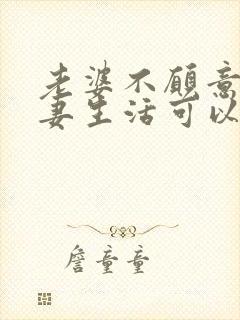 老婆不愿意
妻生活可以
詹童童